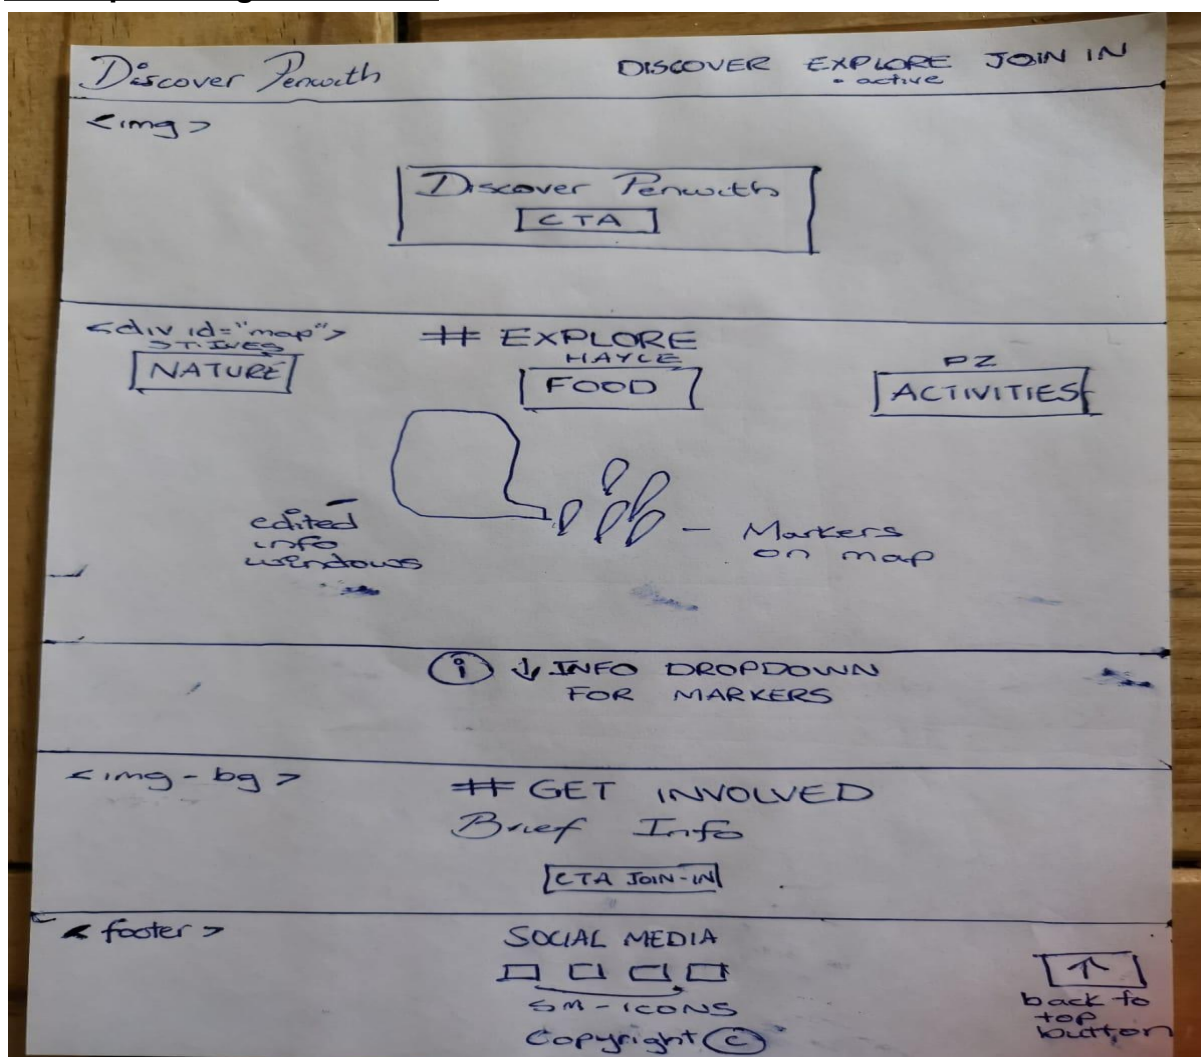 Discover Penwith DISCOVER EXPLORE JOIN IN
• active
<img>
Discover Penwith
CTA
<div id="map"> # EXPLORE
ST.IVES HAYLE PZ
NATURE FOOD ACTIVITIES
edited
info
windows
- Markers
on map
i ↓ INFO DROPDOWN
FOR MARKERS
<img-bg> # GET INVOLVED
Brief Info
CTA JOIN-IN
<footer> SOCIAL MEDIA
SM-ICONS
Copyright ©
↑
back to
top
button